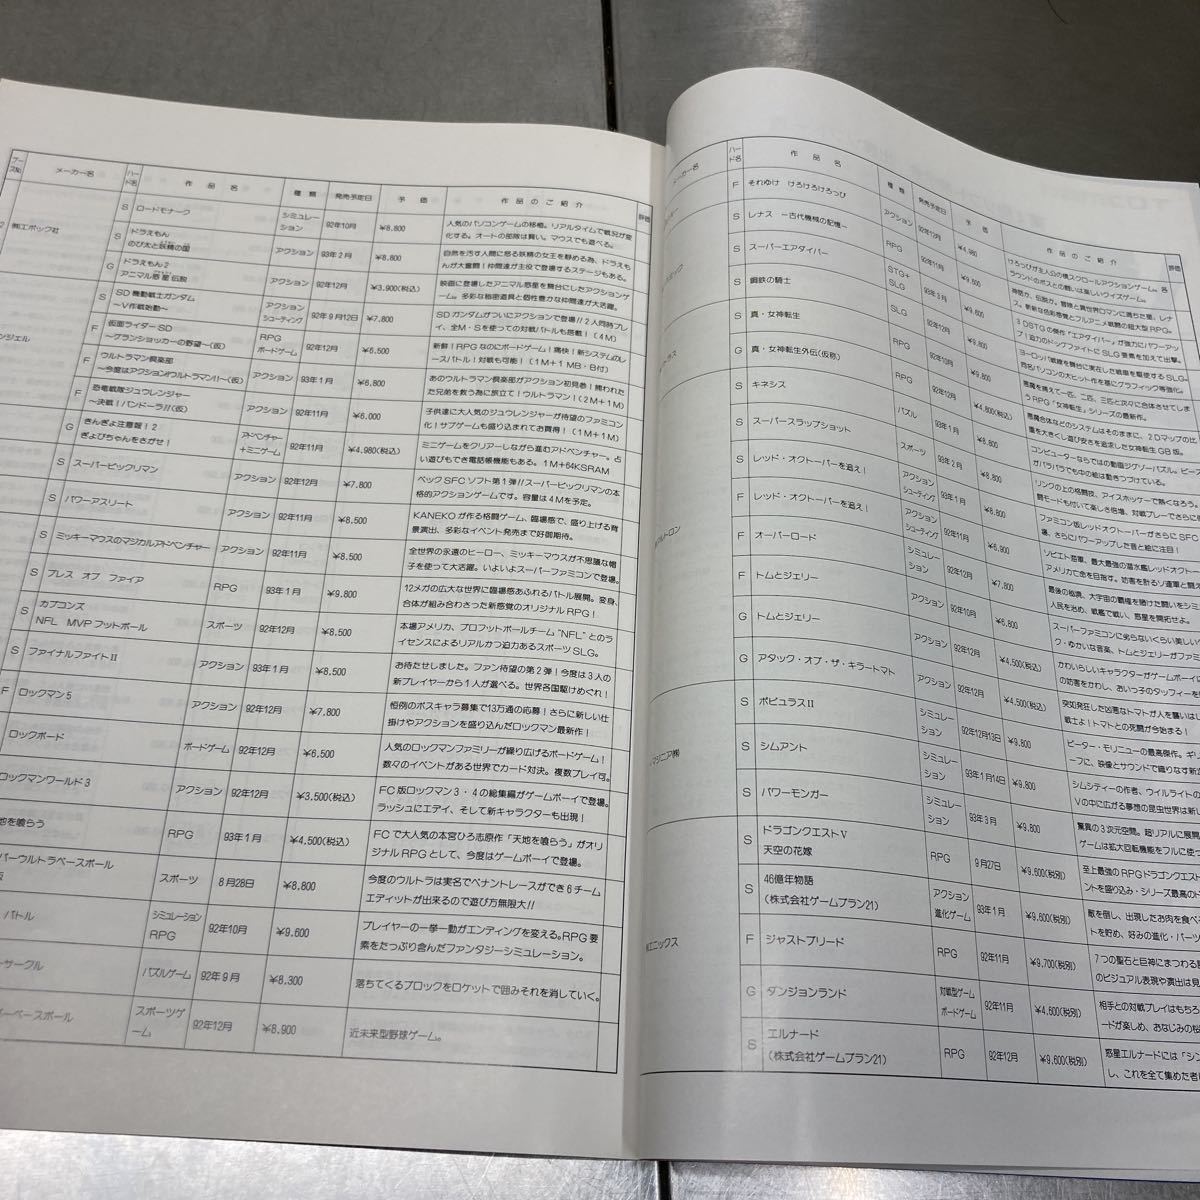 ブース№ メーカー名 ハード名 作品名 種類 発売予定日 予価 作品のご紹介 評価
㈱エポック社
S ロードモナーク シミュレーション 92年10月 ¥8,800 人気のパソコンゲームの移植。リアルタイムで戦況が変化する。オートの部隊は賢い。マウスでも遊べる。
S ドラえもん のび太と妖精の国 アクション 93年2月 ¥8,800 自然を汚す人間に怒る妖精の女王を静める為、ドラえもんが大奮闘！仲間達が主役で登場するステージもある。
G ドラえもん2 アニマル惑星伝説 アクション 92年12月 ¥3,900(税込) 映画に登場したアニマル惑星を舞台にしたアクションゲーム。多彩な秘密道具と個性豊かな仲間達が大活躍。
S SD機動戦士ガンダム ～V作戦始動～ アクションシューティング 92年9月12日 ¥7,800 SDガンダムがついにアクションで登場!!2人同時プレイ、全M・Sを使っての対戦バトルも搭載！（4M）
F 仮面ライダーSD ～グランショッカーの野望～(仮) RPGボードゲーム 92年12月 ¥6,500 新鮮！RPGなのにボードゲーム！痛快！新システムのレースバトル！対戦も可能！（1M＋1MB・B付）
F ウルトラマン倶楽部 ～今度はアクションウルトラマン!!～(仮) アクション 93年1月 ¥6,800 あのウルトラマン倶楽部がアクション初見参！囚われた兄弟を救う為に旅立て！ウルトラマン！（2M＋1M）
F 恐竜戦隊ジュウレンジャー ～決戦！バンドーラ!!(仮) アクション 92年11月 ¥6,000 子供達に大人気のジュウレンジャーが待望のファミコン化！サブゲームも盛り込まれてお買得！（1M＋1M）
G きんぎょ注意報！2 ぎょぴちゃんをさがせ！ アドベンチャー＋ミニゲーム 92年11月 ¥4,980(税込) ミニゲームをクリアーしながら進むアドベンチャー。占い遊びもでき電話帳機能もある。1M＋64KSRAM
S スーパービックリマン アクション 92年12月 ¥7,800 ベックSFCソフト第1弾!!スーパービックリマンの本格的アクションゲームです。容量は4Mを予定。
S パワーアスリート アクション 92年11月 ¥8,500 KANEKOが作る格闘ゲーム、臨場感で、盛り上げる背景演出、多彩なイベント発売まで好御期待。
S ミッキーマウスのマジカルアドベンチャー アクション 92年11月 ¥8,500 全世界の永遠のヒーロー、ミッキーマウスが不思議な帽子を使って大活躍。いよいよスーパーファミコンで登場。
S ブレス オブ ファイア RPG 93年1月 ¥9,800 12メガの広大な世界に臨場感あふれるバトル展開。変身、合体が組み合わさった新感覚のオリジナルRPG！
S カプコンズ NFL MVPフットボール スポーツ 92年12月 ¥8,500 本場アメリカ、プロフットボールチーム“NFL”とのライセンスによるリアルかつ迫力あるスポーツSLG。
S ファイナルファイトⅡ アクション 93年1月 ¥8,500 お待たせしました。ファン待望の第2弾！今度は3人の新プレイヤーから1人が選べる。世界各国駆けめぐれ！
F ロックマン5 アクション 92年12月 ¥7,800 恒例のボスキャラ募集で13万通の応募！さらに新しい仕掛けやアクションを盛り込んだロックマン最新作！
ロックボード ボードゲーム 92年12月 ¥6,500 人気のロックマンファミリーが繰り広げるボードゲーム！数々のイベントがある世界でカード対決。複数プレイ可。
ロックマンワールド3 アクション 92年12月 ¥3,500(税込) FC版ロックマン3・4の総集編がゲームボーイで登場。ラッシュにエディ、そして新キャラクターも出現！
地を喰らう RPG 93年1月 ¥4,500(税込) FCで大人気の本宮ひろ志原作「天地を喰らう」がオリジナルRPGとして、今度はゲームボーイで登場。
パーウルトラベースボール 版 スポーツ 8月28日 ¥8,800 今度のウルトラは実名でペナントレースができ6チームエディットが出来るので遊び方無限大!!
バトル シミュレーションRPG 92年10月 ¥9,600 プレイヤーの一挙一動がエンディングを変える。RPG要素をたっぷり含んだファンタジーシミュレーション。
ーサークル パズルゲーム 92年9月 ¥8,300 落ちてくるブロックをロケットで囲みそれを消していく。
ーベースボール スポーツゲーム 92年12月 ¥8,900 近未来型野球ゲーム。
メーカー名 ハード名 作品名 種類 発売予定日 予価 作品のご紹介 評価
F それゆけ けろけろけろっぴ アクション 92年12月 ¥4,980 けろっぴが主人公の横スクロールアクションゲーム。各ラウンドのボスとの闘いは楽しいクイズゲーム。
S レナス －古代機械の記憶－ RPG 92年11月 ¥9,500
S スーパーエアダイバー STG＋SLG 93年3月 ¥9,800 3DSTGの傑作『エアダイバー』が強力にパワーアップ！迫力のドッグファイトにSLG要素を加えて出撃。
S 鋼鉄の騎士 SLG ¥9,800 ヨーロッパ戦線を舞台に実在した戦車を駆使するSLG。同名パソコンの大ヒット作を基にグラフィック等強化。
S 真・女神転生 RPG 92年10月 ¥9,800 悪魔を捕えて一匹、二匹、三匹と次々に合体させてしまうRPG「女神転生」シリーズの最新作。
G 真・女神転生外伝(仮称) RPG 92年12月 ¥4,800(税込) 悪魔合体などのシステムはそのままに、2Dマップの比重を大きくし遊び安さを追求した女神転生GB版。
S キネシス パズル 93年1月 ¥8,800 コンピューターならではの動画ジグソーパズル。ピースがバラバラでも中の絵は動きつづけている。
S スーパースラップショット スポーツ 93年2月 ¥8,800 リンクの上の格闘技、アイスホッケーで熱くなろう。
S レッド・オクトーバーを追え！ アクションシューティング 93年1月 ¥8,800 ファミコン版レッドオクトーバーがさらにSFC
F レッド・オクトーバーを追え！ アクションシューティング 92年11月 ¥6,800 ソビエト籍軍、最大最強の潜水艦レッドオクトー
F オーバーロード シミュレーション 92年12月 ¥7,800 最後の極境、大宇宙の覇権を賭けた闘いをシミ
F トムとジェリー アクション 92年10月 ¥6,800 スーパーファミコンに劣らないくらい美しい
G トムとジェリー アクション 92年12月 ¥4,500(税込) かわいらしいキャラクターがゲームボーイに
G アタック・オブ・ザ・キラートマト アクション 92年12月 ¥4,500(税込) 突如発狂した凶悪なトマトが人を襲いは
S ポピュラスⅡ シミュレーション 92年12月13日 ¥9,800 ピーター・モリニューの最高傑作。ギリ
S シムアント シミュレーション 93年1月14日 ¥9,800 シムシティーの作者、ウイルライトの
S パワーモンガー シミュレーション 93年3月 ¥9,800 驚異の3次元空間。超リアルに展開
㈱エニックス
S ドラゴンクエストⅤ 天空の花嫁 RPG 9月27日 ¥9,600(税別) 至上最強のRPGドラゴンクエスト
S 46億年物語 (株式会社ゲームプラン21) アクション進化ゲーム 93年1月 ¥9,600(税別) 敵を倒し、出現したお肉を食べ
F ジャストブリード RPG 92年11月 ¥9,700(税別) 7つの聖石と巨神にまつわる
G ダンジョンランド 対戦型ゲームボードゲーム 92年11月 ¥4,600(税別) 相手との対戦プレイはもちろ
S エルナード (株式会社ゲームプラン21) RPG 92年12月 ¥9,600(税別) 惑星エルナードには「シン
し、これを全て集めた者